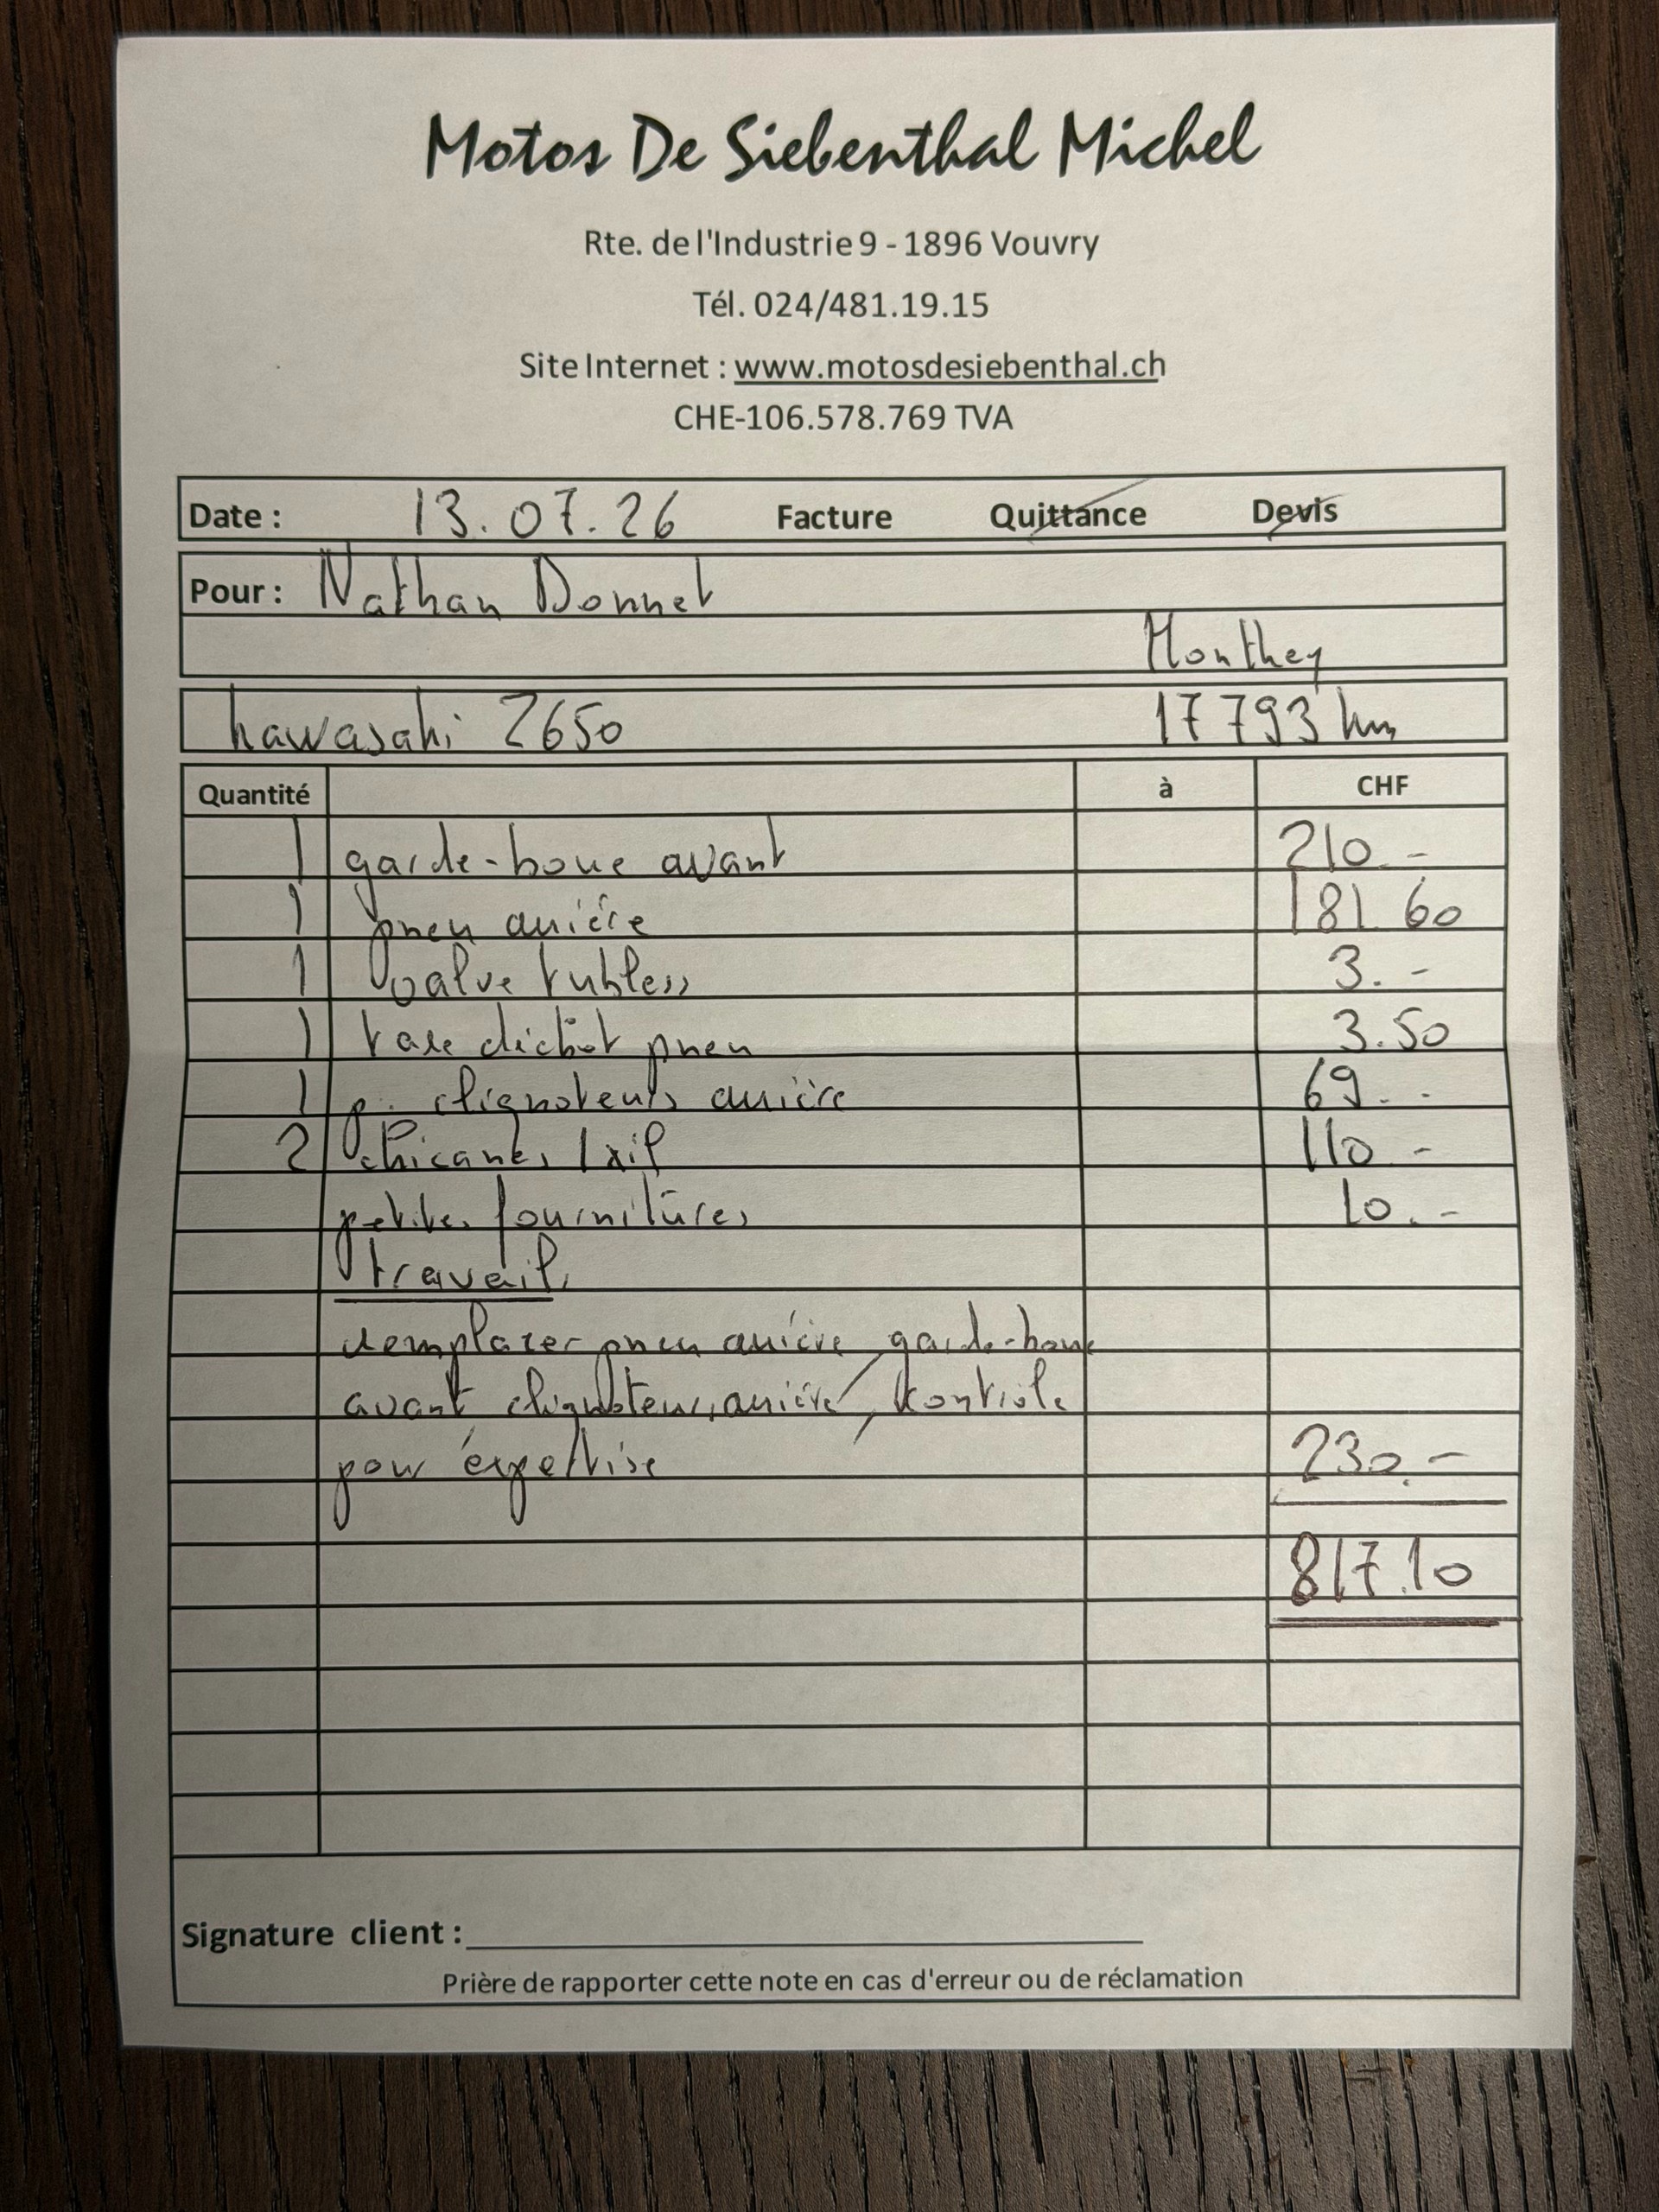 Motos De Siebenthal Michel
Rte. de l'Industrie 9 - 1896 Vouvry
Tél. 024/481.19.15
Site Internet : www.motosdesiebenthal.ch
CHE-106.578.769 TVA
Date : 13.07.26 Facture Quittance Devis
Pour : Nathan Donnet
Monthey
Kawasaki Z650 17793 km
Quantité à CHF
1 garde-boue avant 210.-
1 pneu arrière 181.60
1 valve tubless 3.-
1 taxe déchet pneu 3.50
1 p. clignoteurs arrière 69.-
2 chicanes Ixil 110.-
petites fournitures 10.-
travail
remplacer pneu arrière, garde-boue
avant clignoteurs arrière, contrôle
pour expertise 230.-
817.10
Signature client :
Prière de rapporter cette note en cas d'erreur ou de réclamation